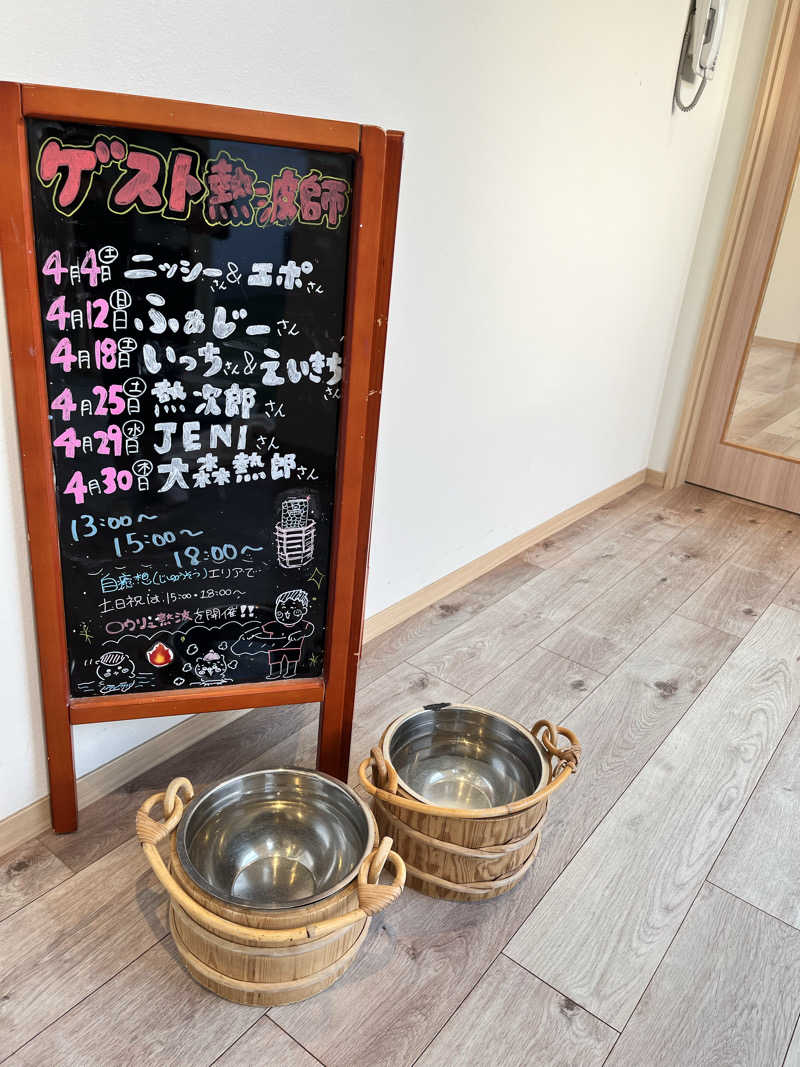 ゲスト熱波師
4月4日㊏ニッシーさん&エポさん
4月12日㊐ふぁじーさん
4月18日㊏いっちさん&えいきちさん
4月25日㊏熱次郎さん
4月29日㊌JENIさん
4月30日㊍大森熱郎さん
13:00～
15:00～
18:00～
(じゅうそう)エリアで…
土日祝は、15:00・18:00～
熱波を開催!!